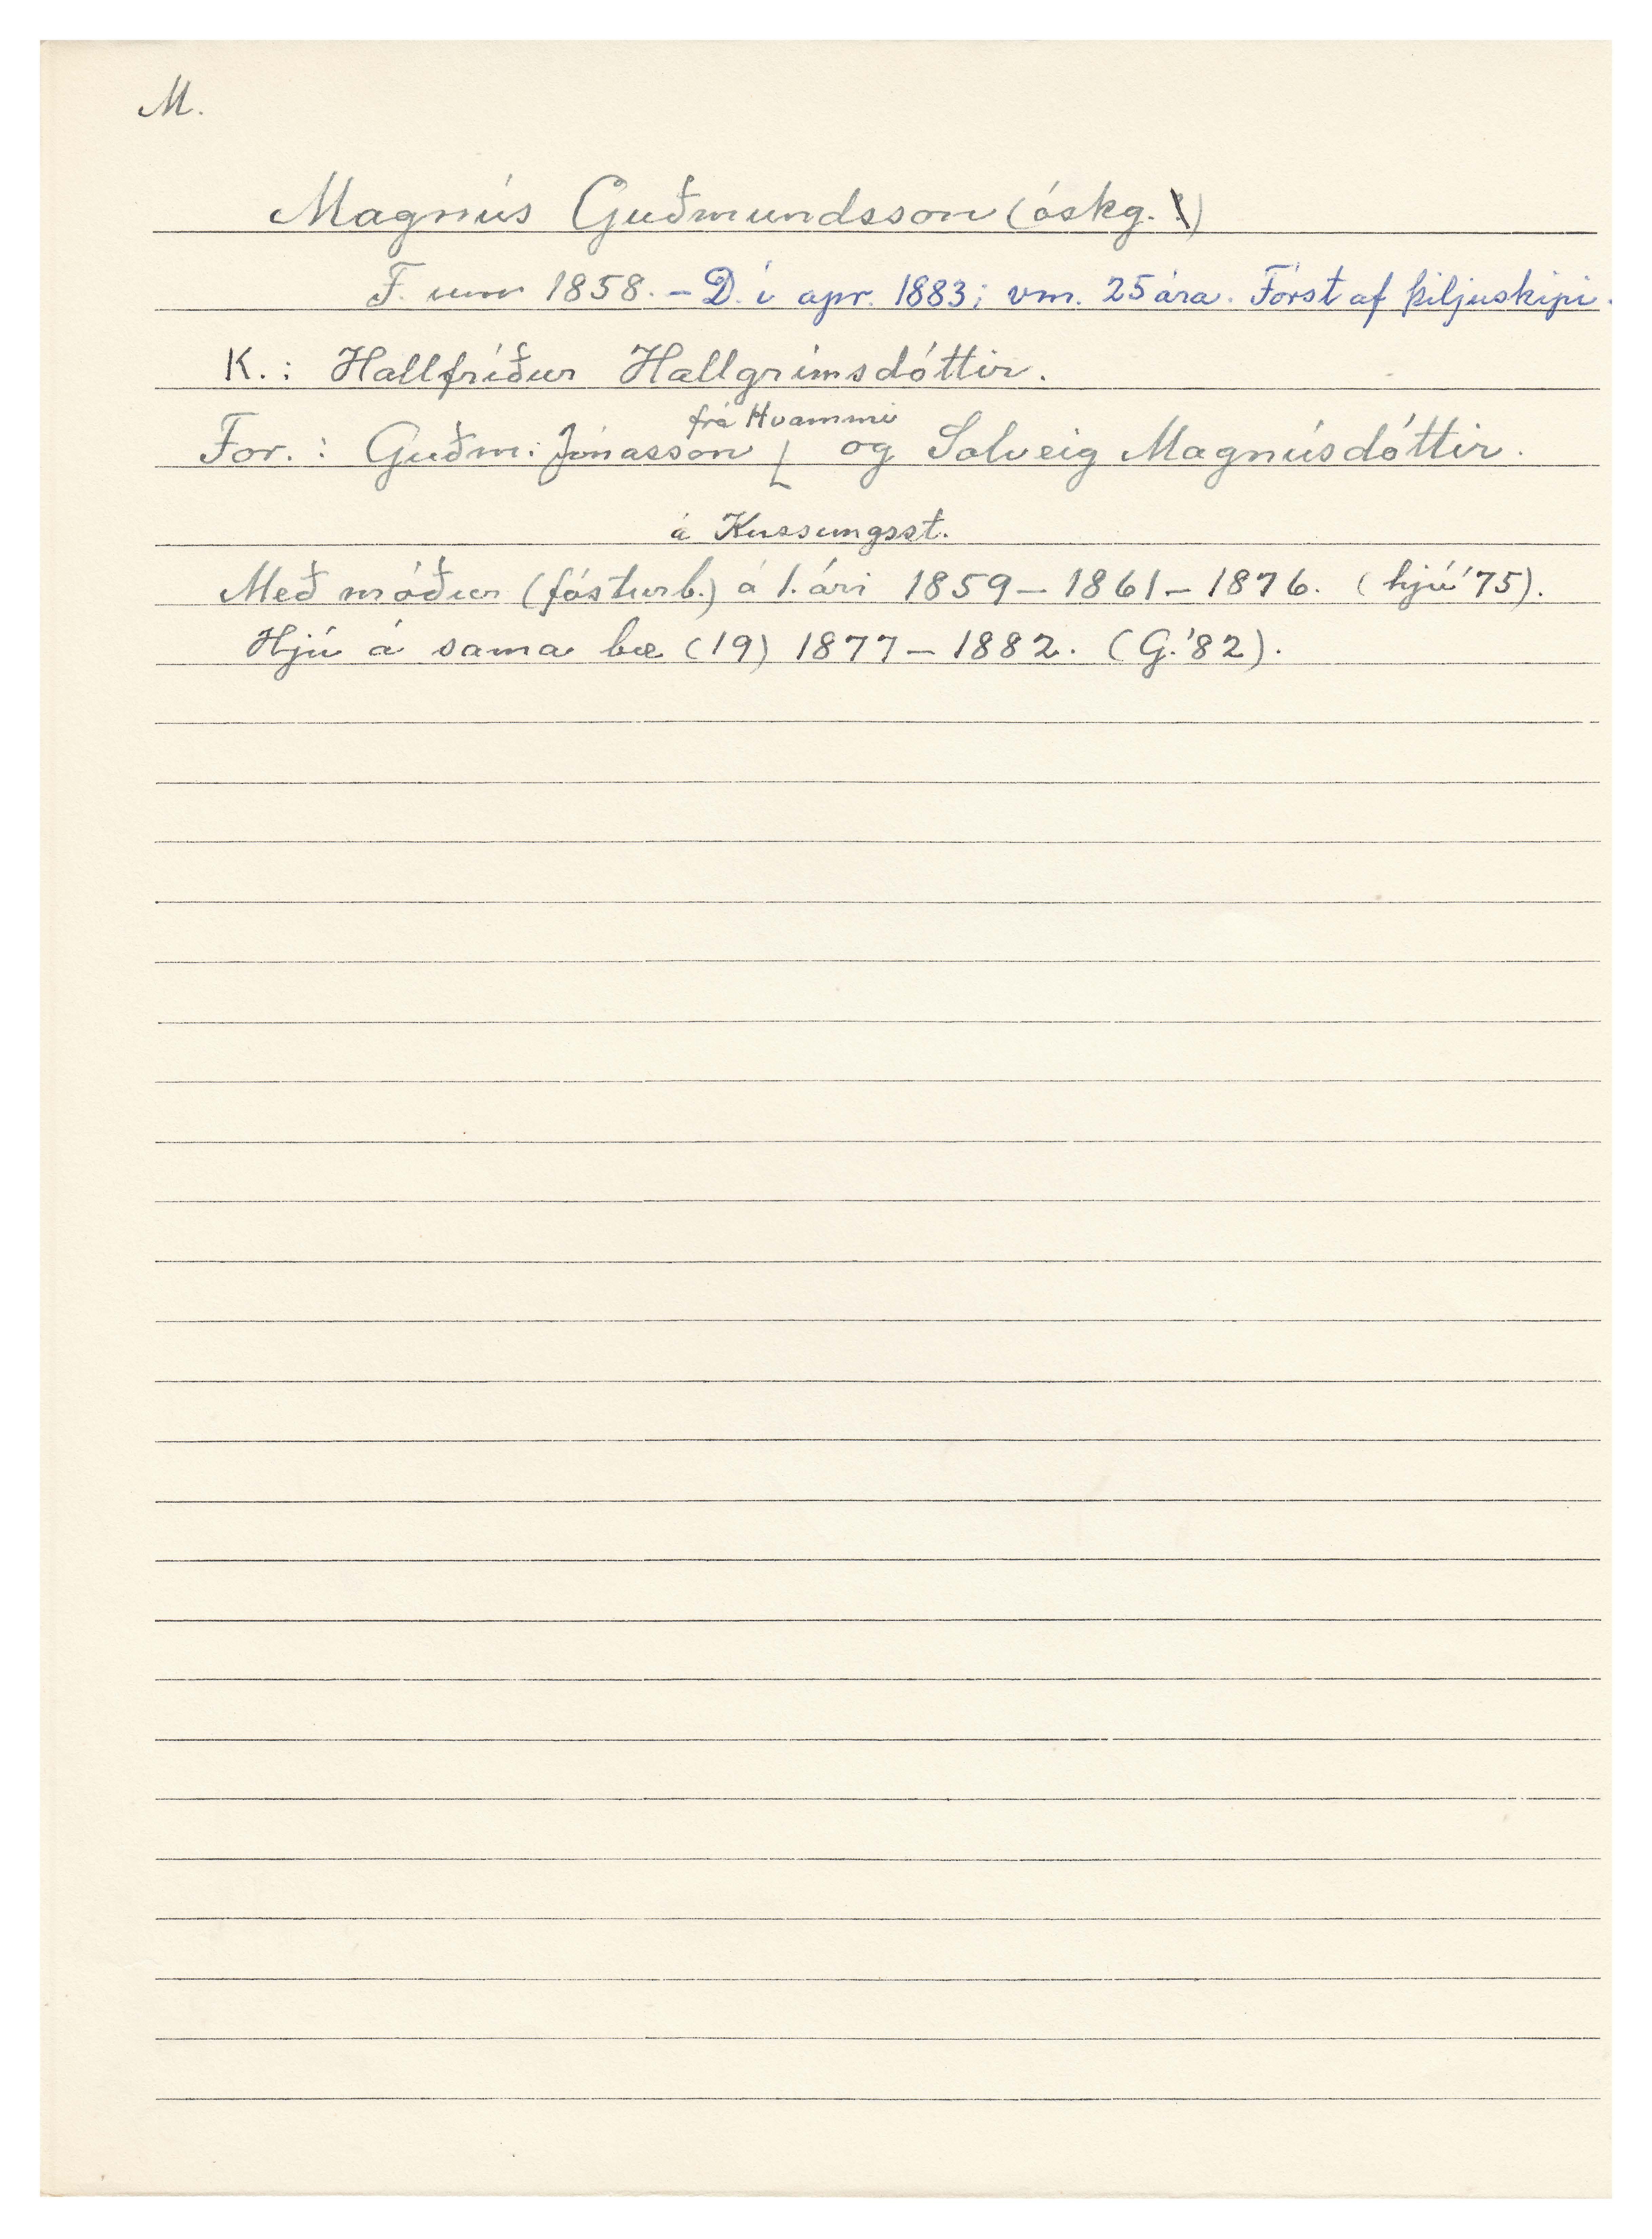 M.
Magnús Guðmundsson (óskg.)
F. um 1858. – D. í apr. 1883; vm. 25 ára. Fórst af þiljuskipi.
K.: Hallfríður Hallgrímsdóttir.
frá Hvammi
For.: Guðm. Jónasson og Solveig Magnúsdóttir.
á Kussungsst.
Með móður (fósturb.) á 1. ári 1859 – 1861 – 1876. (hjú '75).
Hjú á sama bæ (19) 1877 – 1882. (G. '82).